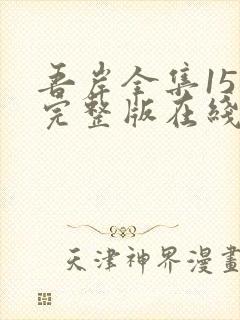 吾岸全集15
完整版在綫
天津神界漫畫